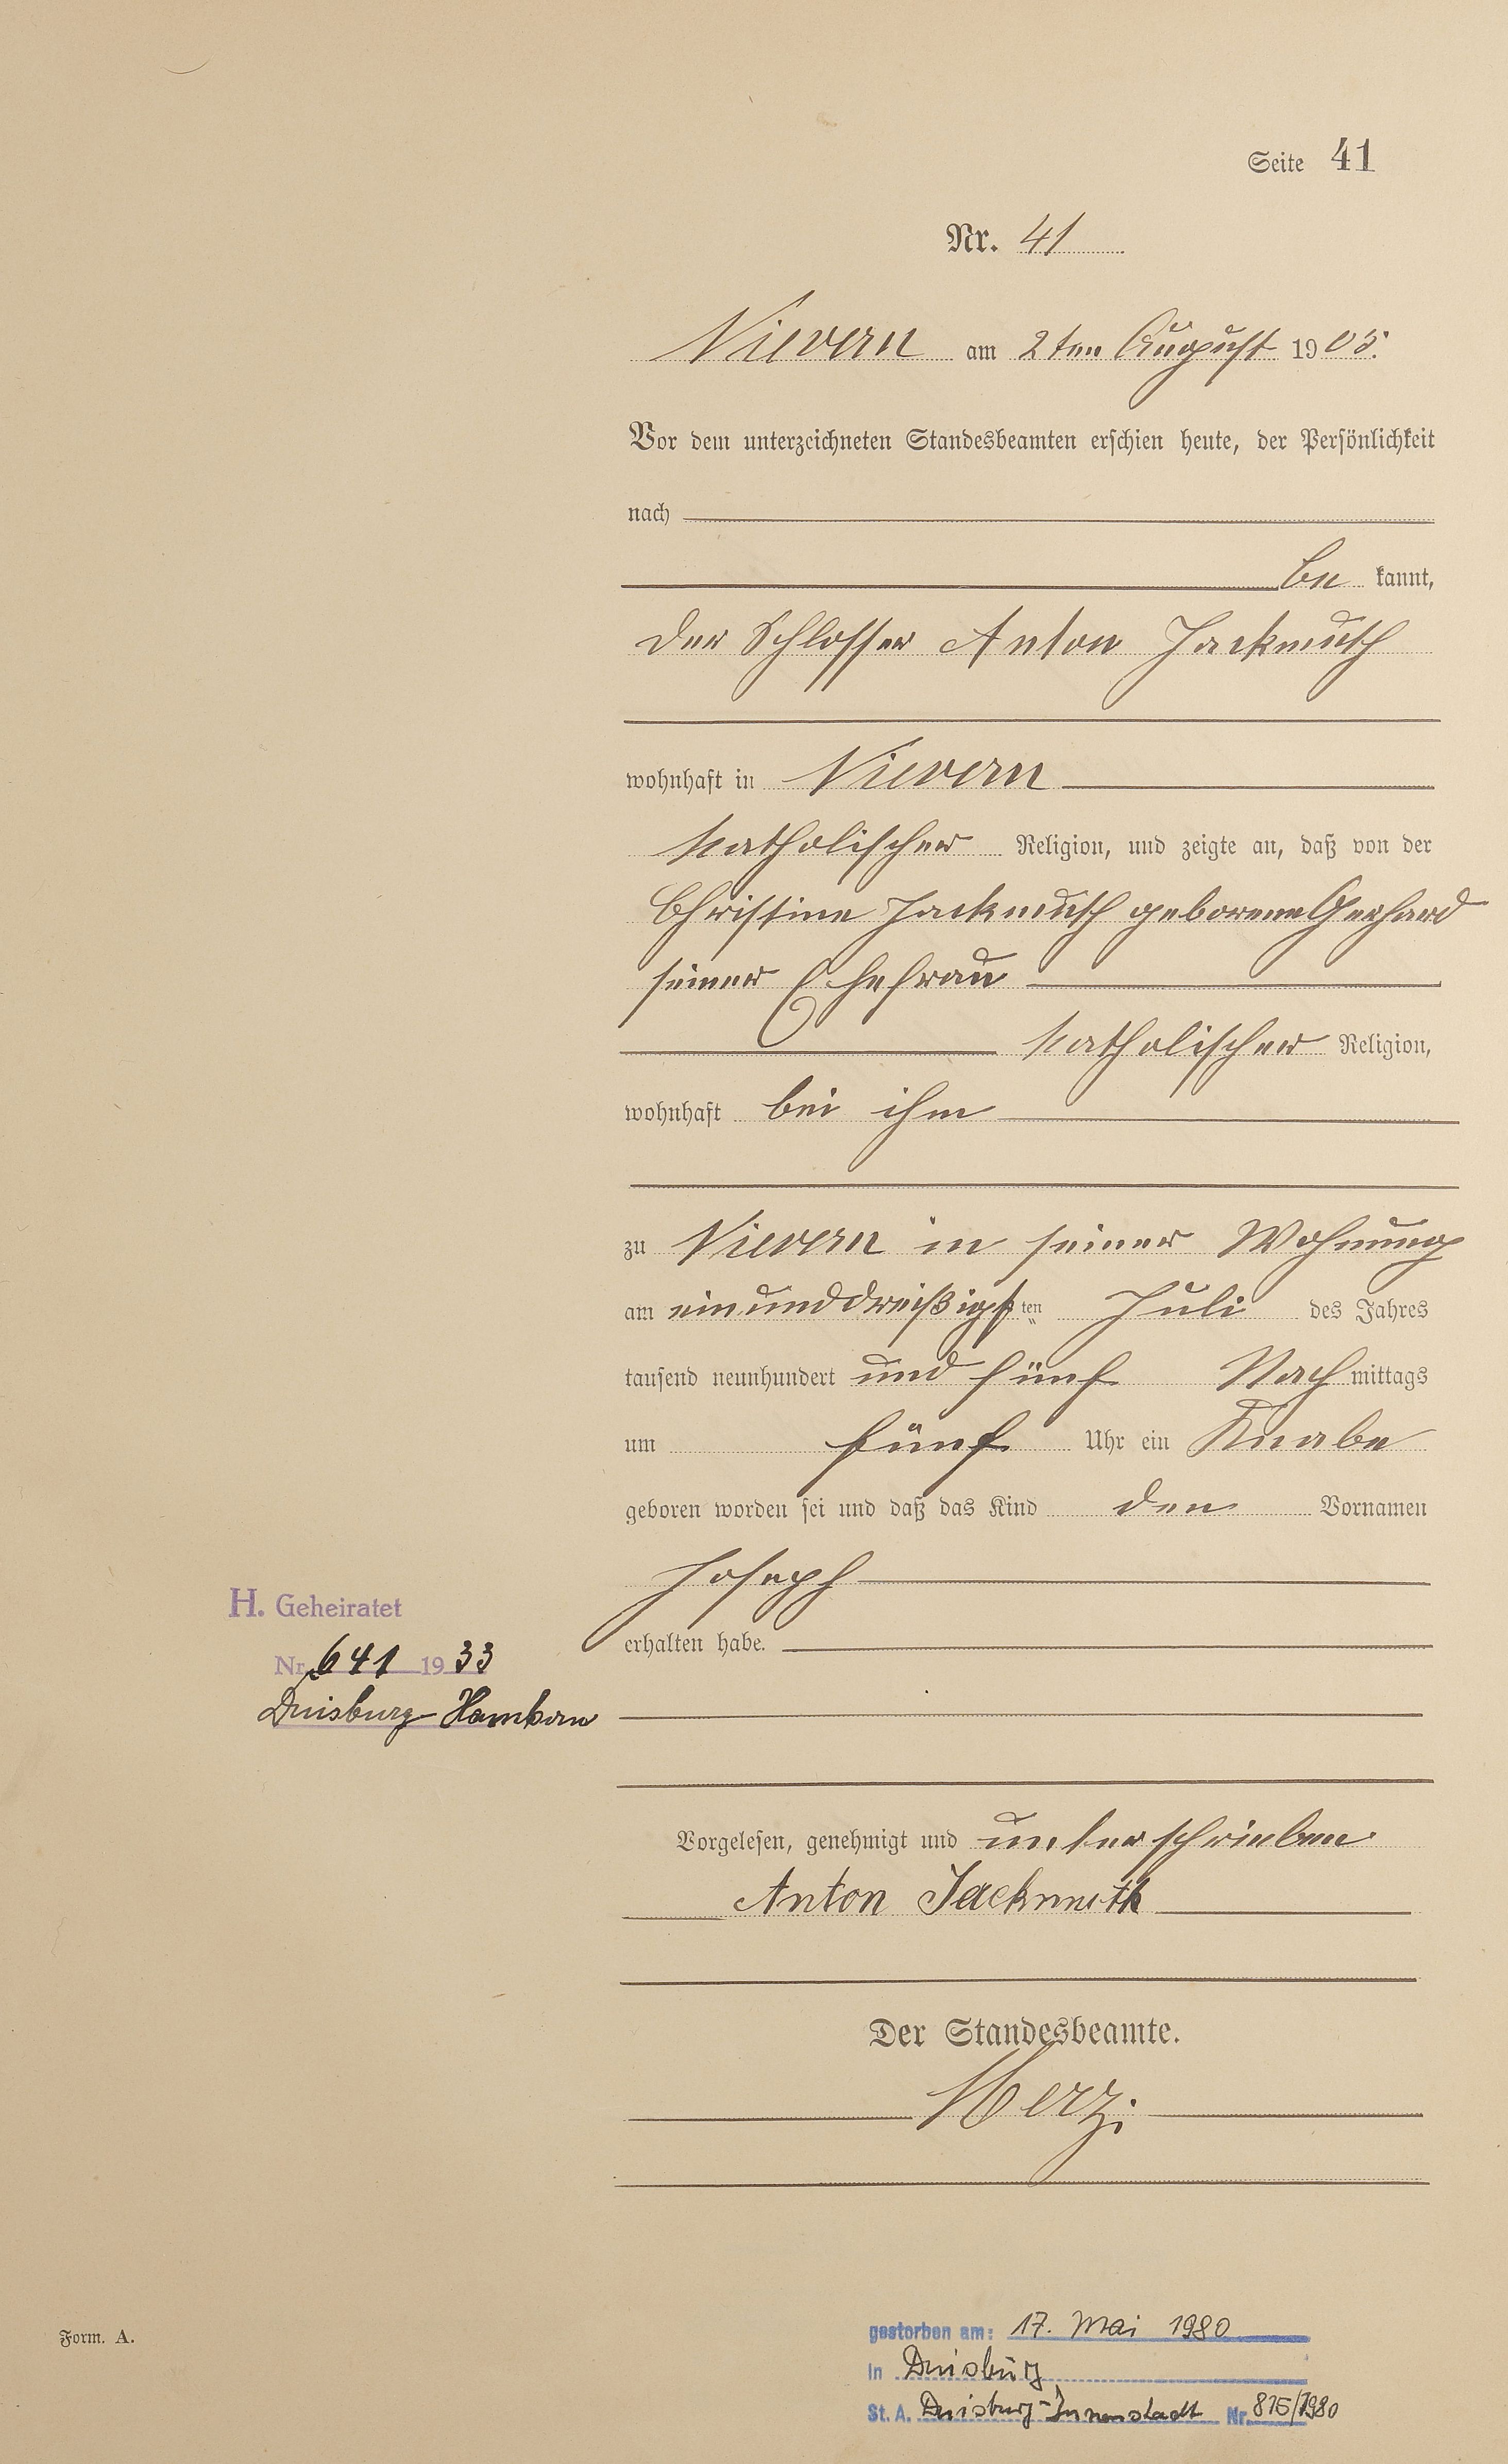 Seite 41
Nr. 41
Nievern am 2ten August 1905.
Vor dem unterzeichneten Standesbeamten erschien heute, der Persönlichkeit
nach
be kannt,
der Schlosser Anton Jackmuth
wohnhaft in Nievern
katholischer Religion, und zeigte an, daß von der
Christine Jackmuth geborene Gerhard
seiner Ehefrau
katholischer Religion,
wohnhaft bei ihm
zu Nievern in seiner Wohnung
am einunddreißigsten Juli des Jahres
tausend neunhundert und fünf Nach mittags
um fünf Uhr ein Knabe
geboren worden sei und daß das Kind den Vornamen
Joseph
erhalten habe.
H. Geheiratet
Nr. 641 1933
Duisburg-Hamborn
Vorgelesen, genehmigt und unterschrieben
Anton Jackmuth
Der Standesbeamte.
Form. A.
gestorben am: 17. Mai 1980
in Duisburg
St. A. Duisburg-Innenstadt Nr. 816/1980